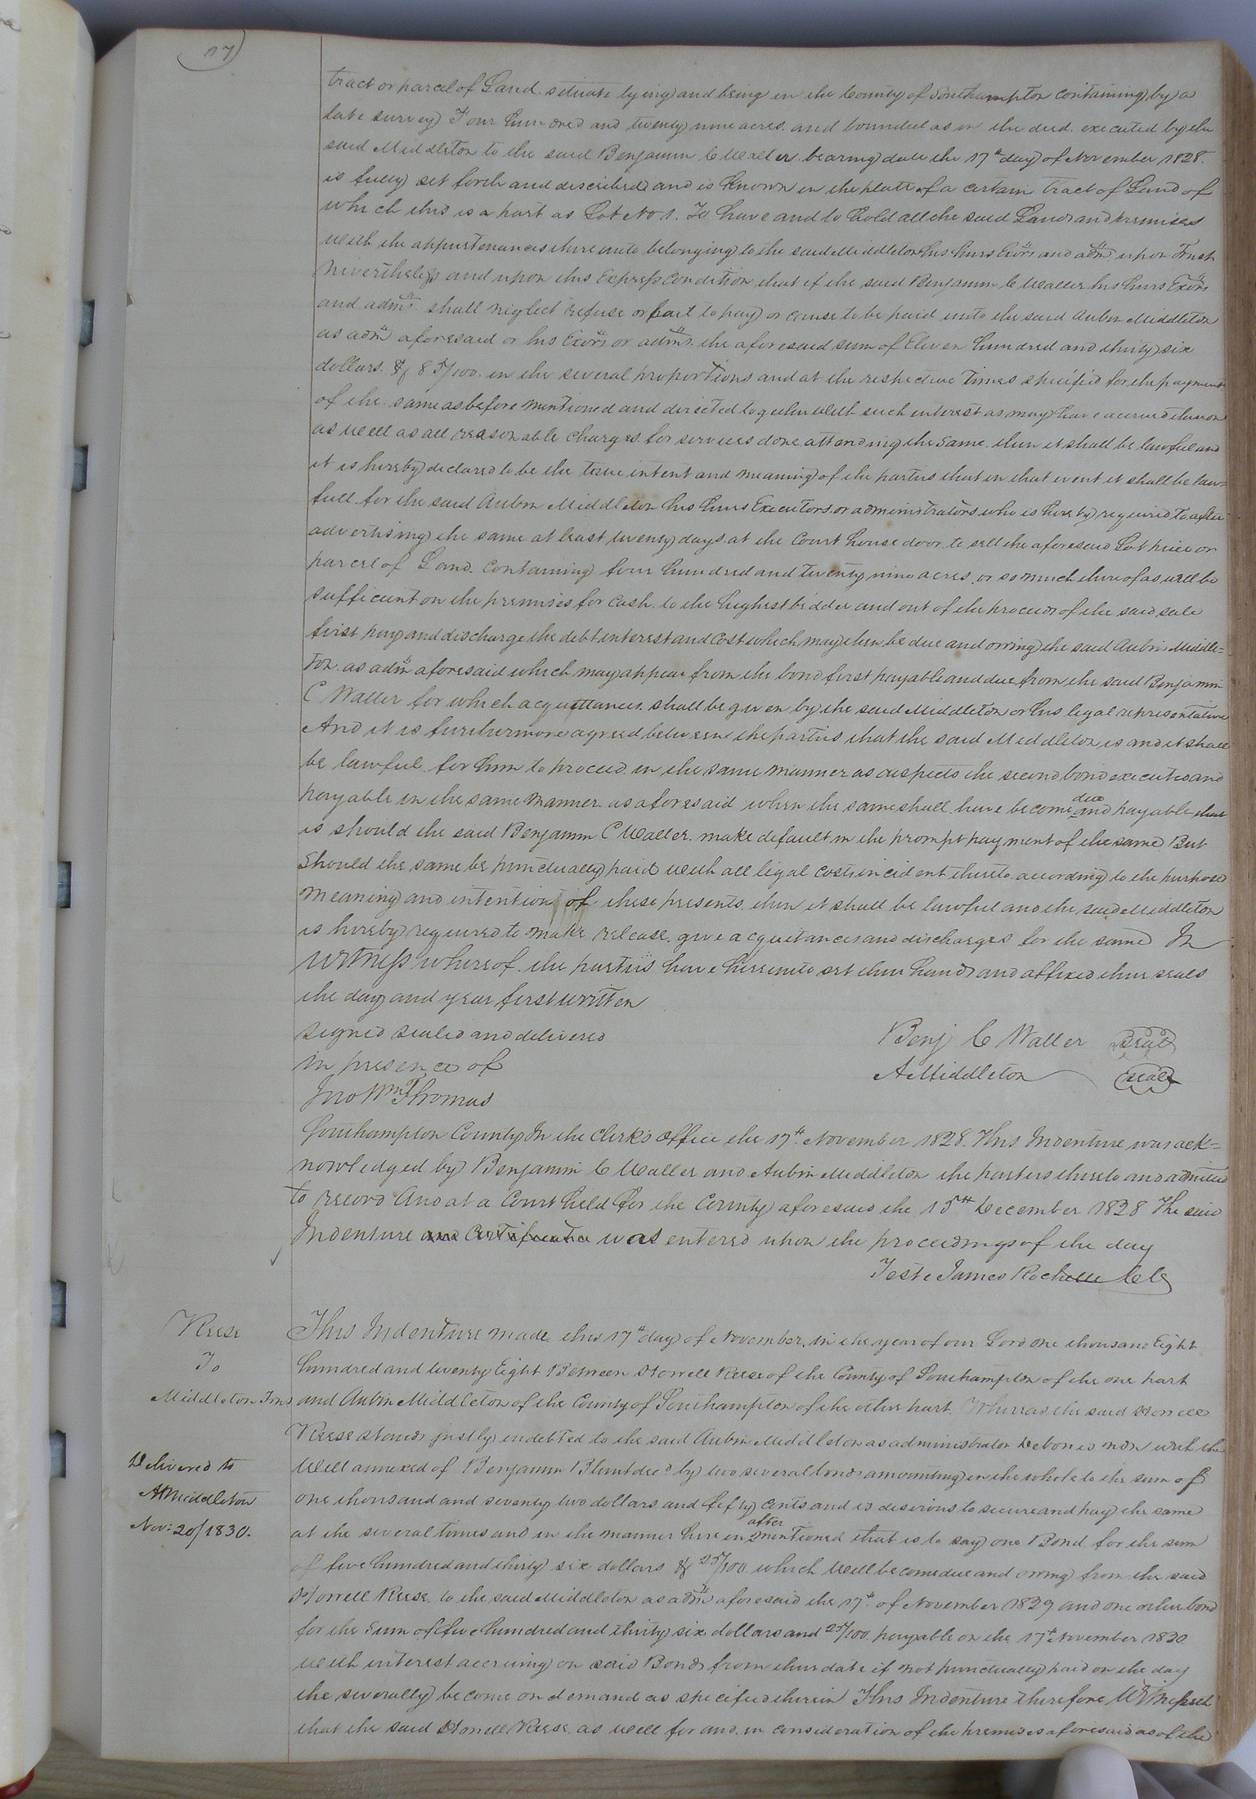 17)
tract or parcel of Land situate lying and being in the County of Southampton containing by a
late survey Four hundred and twenty nine acres and bounded as in the deed executed by the
said Middleton to the said Benjamin C Waller bearing date the 17th day of November 1828.
is fully set forth and described and is known in the platt of a certain tract of Land of
which this is a part as Lot No 1. To have and to hold all the said Land and premises
with the appurtenances thereunto belonging to the said Middleton his heirs Exors and adms upon Trust
Nevertheless and upon this Express condition that if the said Benjamin C Waller his heirs Exors
and adms shall neglect refuse or fail to pay or cause to be paid unto the said Aubin Middleton
as adm aforesaid or his Exors or adms the aforesaid sum of Eleven hundred and thirty six
dollars & 85/100 in the several proportions and at the respective Times specified for the payment
of the same as before mentioned and directed together with such interest as may have accrued thereon
as well as all reasonable charges for services done attending the same then it shall be lawful and
it is hereby declared to be the true intent and meaning of the parties that in that event it shall be law-
full for the said Aubin Middleton his heirs Executors or administrators who is hereby required to after
advertising the same at least twenty days at the Court house door to sell the aforesaid Lot piece or
parcel of Land containing four hundred and Twenty nine acres or so much thereof as will be
sufficient on the premises for cash to the highest bidder and out of the proceeds of the said sale
first pay and discharge the debt interest and cost which may then be due and owing the said Aubin Middle=
Ton as adm aforesaid which may appear from the bond first payable and due from the said Benjamin
C Waller for which acquittances shall be given by the said Middleton or his legal representative
And it is furthermore agreed between the parties that the said Middleton is and it shall
be lawful for him to proceed in the same manner as respects the second bond executed and
payable in the same Manner as aforesaid when the same shall have become due and payable that
is should the said Benjamin C Waller make default in the prompt payment of the same But
Should the same be punctually paid with all legal costs incident thereto according to the purpose
meaning and intention of these presents then it shall be lawful and the said Middleton
is hereby required to make release give acquittances and discharges for the same In
Witness whereof the parties have hereunto set their hands and affixed their seals
the day and year first written
signed sealed and delivered
in presence of
Jno Wm Thomas
Benj C Waller Seal
A Middleton Seal
Southampton County In the Clerk's office the 17th November 1828. This Indenture was ack=
nowledged by Benjamin C Waller and Aubin Middleton the parties thereto and admitted
to record And at a Court held for the County aforesaid the 15th December 1828 The said
Indenture and Certificate was entered upon the proceedings of the day
Teste James Rochelle Cl
Reese
To
Middleton
Delivered to
A Middleton
Nov: 20/1830.
This Indenture made this 17th day of November, in the year of our Lord one thousand Eight
hundred and twenty Eight Between Storrell Reese of the County of Southampton of the one part
and Aubin Middleton of the County of Southampton of the other part Whereas the said Storrell
Reese stands justly indebted to the said Aubin Middleton as administrator Debonis non with the
Will annexed of Benjamin Blunt decd by two several bonds amounting in the whole to the sum of
one thousand and seventy two dollars and fifty cents and is desirous to secure and pay the same
at the several times and in the manner herein after mentioned that is to say one Bond for the sum
of five hundred and thirty six dollars & 25/100 which will become due and owing from the said
Storrell Reese to the said Middleton as adm aforesaid the 17th of November 1829 and one other bond
for the Sum of five hundred and thirty six dollars and 25/100 payable on the 17th November 1830
with interest accruing on said Bonds from their date if not punctually paid on the day
the severally become on demand as specified therein This Indenture therefore Witnesseth
that the said Storrell Reese as well for and in consideration of the premises aforesaid as of the